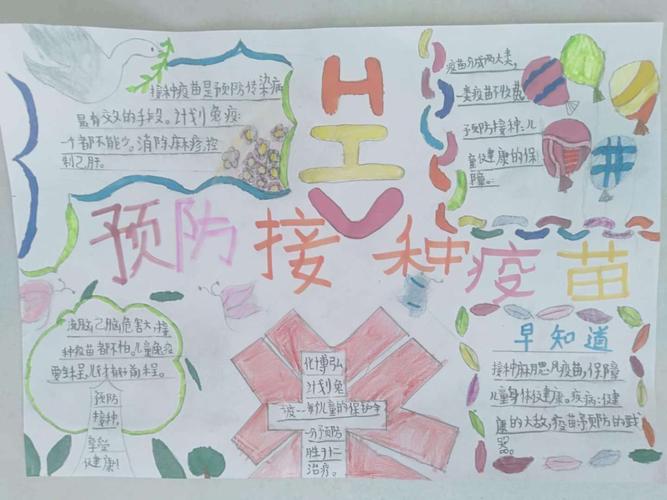 接种疫苗是预防传染病
最有效的手段。计划免疫:
一个都不能少。消除麻疹,控
制乙肝。
HIV
疫苗分成两大类,
一类疫苗不收费
预防接种,儿
童健康的保
障。
预防接种疫苗
流脑乙脑危害大,接
种疫苗都不怕。儿童免疫
要牢
预防
接种,
享受
健康!
计划免
疫
儿童的保护伞
一分预防
胜于
治疗。
早知道
接种麻腮风疫苗,保障
儿童身体健康。疾病:健
康的大敌,疫苗:预防的武
器。